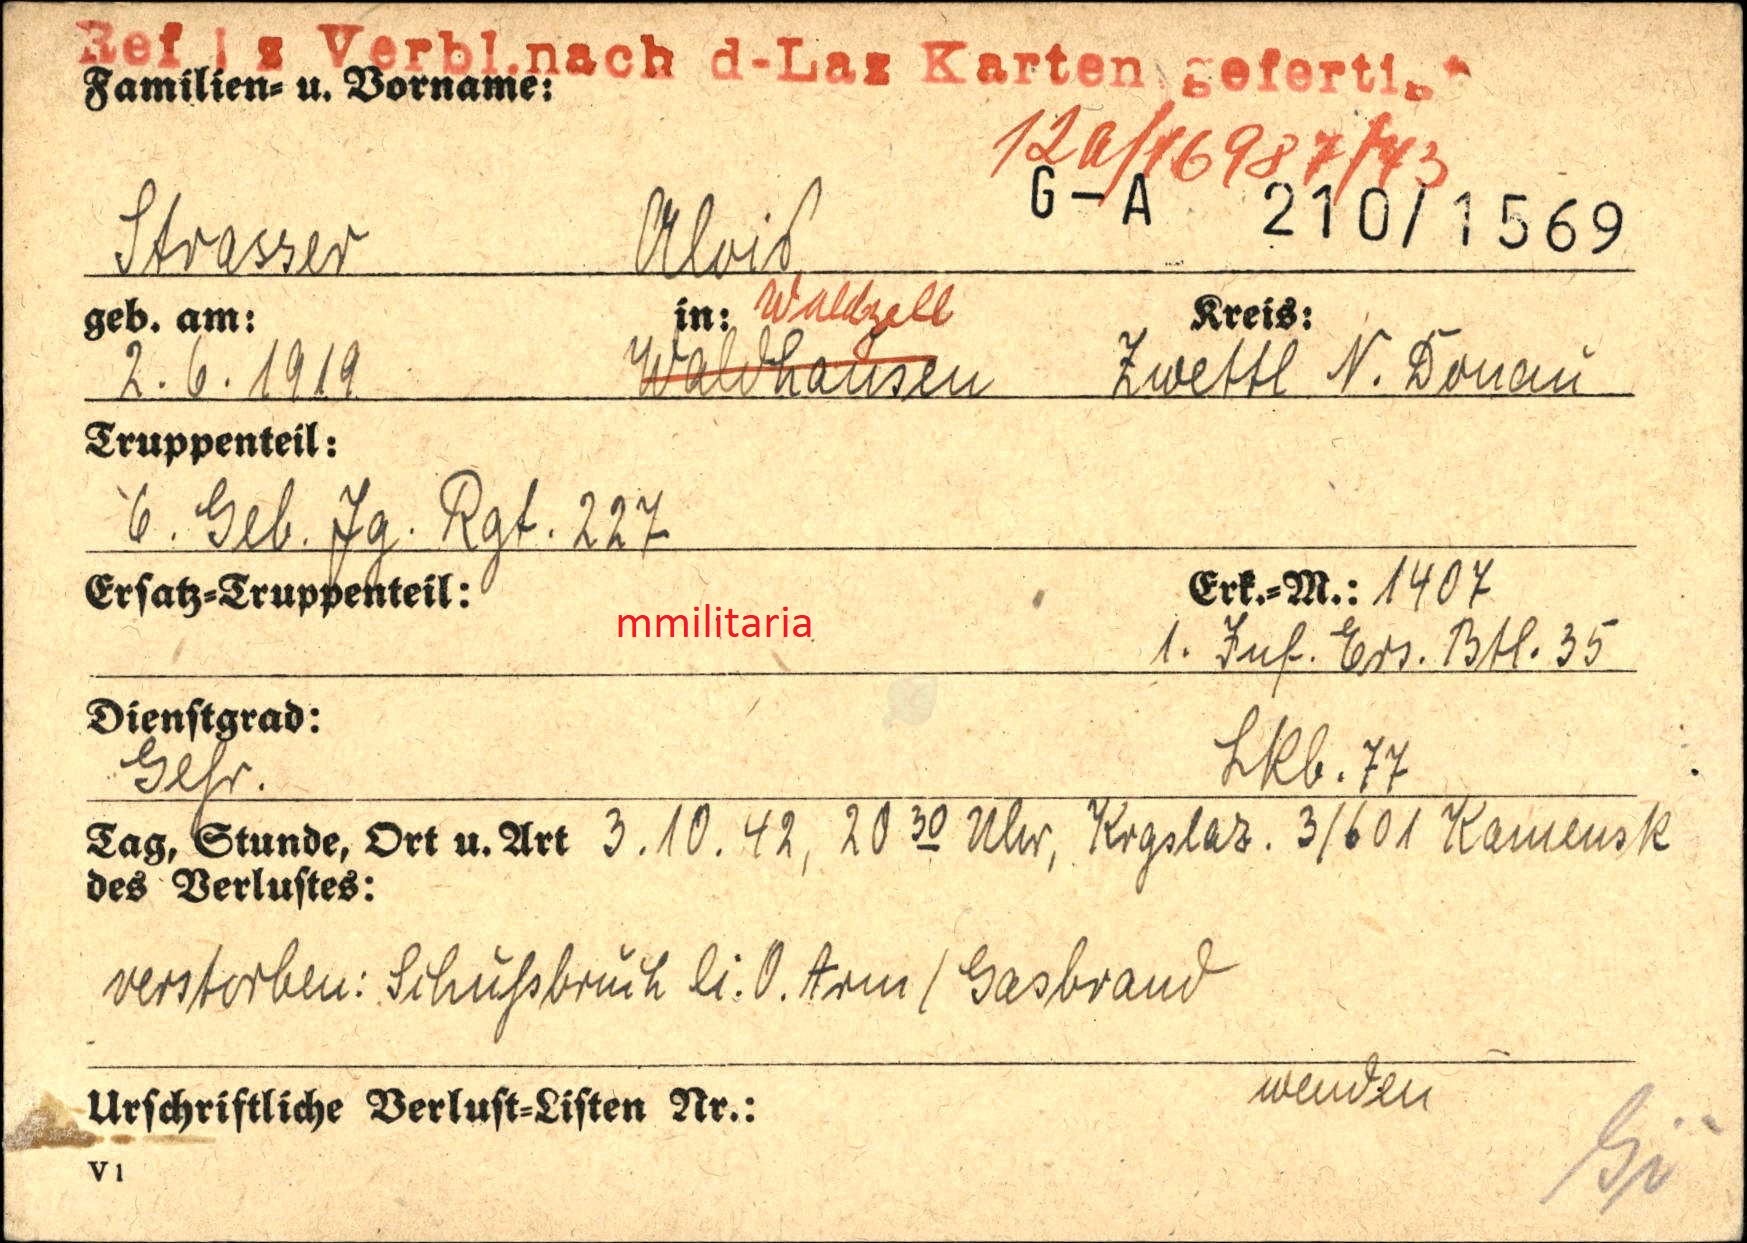 Ref I z Verbl.nach d-Laz Karten gefertigt
Familien- u. Vorname:
12a/16987/43
G-A 210/1569
Strasser Alois
geb. am: in: Waldzell Kreis:
2.6.1919 Waldhausen Zwettl N. Donau
Truppenteil:
6. Geb. Jg. Rgt. 227
Ersatz-Truppenteil: Erk.-M.: 1407
mmilitaria
1. Inf. Ers. Btl. 35
Dienstgrad:
Gefr. Lkb. 77
Tag, Stunde, Ort u. Art 3.10.42, 20 30 Uhr, Krgslaz. 3/601 Kamensk
des Verlustes:
verstorben: Schußbruch li. O. Arm / Gasbrand
wenden
Urschriftliche Verlust-Listen Nr.:
V 1